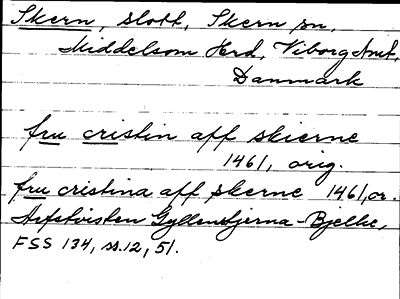 Skern, slott, Skern sn,
Middelsom Hrd, Viborg Amt,
Danmark
fru cristin aff skierne
1461, orig.
fru cristina aff skerne 1461, or.
Arfstvisten Gyllenstjerna-Bjelke,
FSS 134, ss. 12, 51.